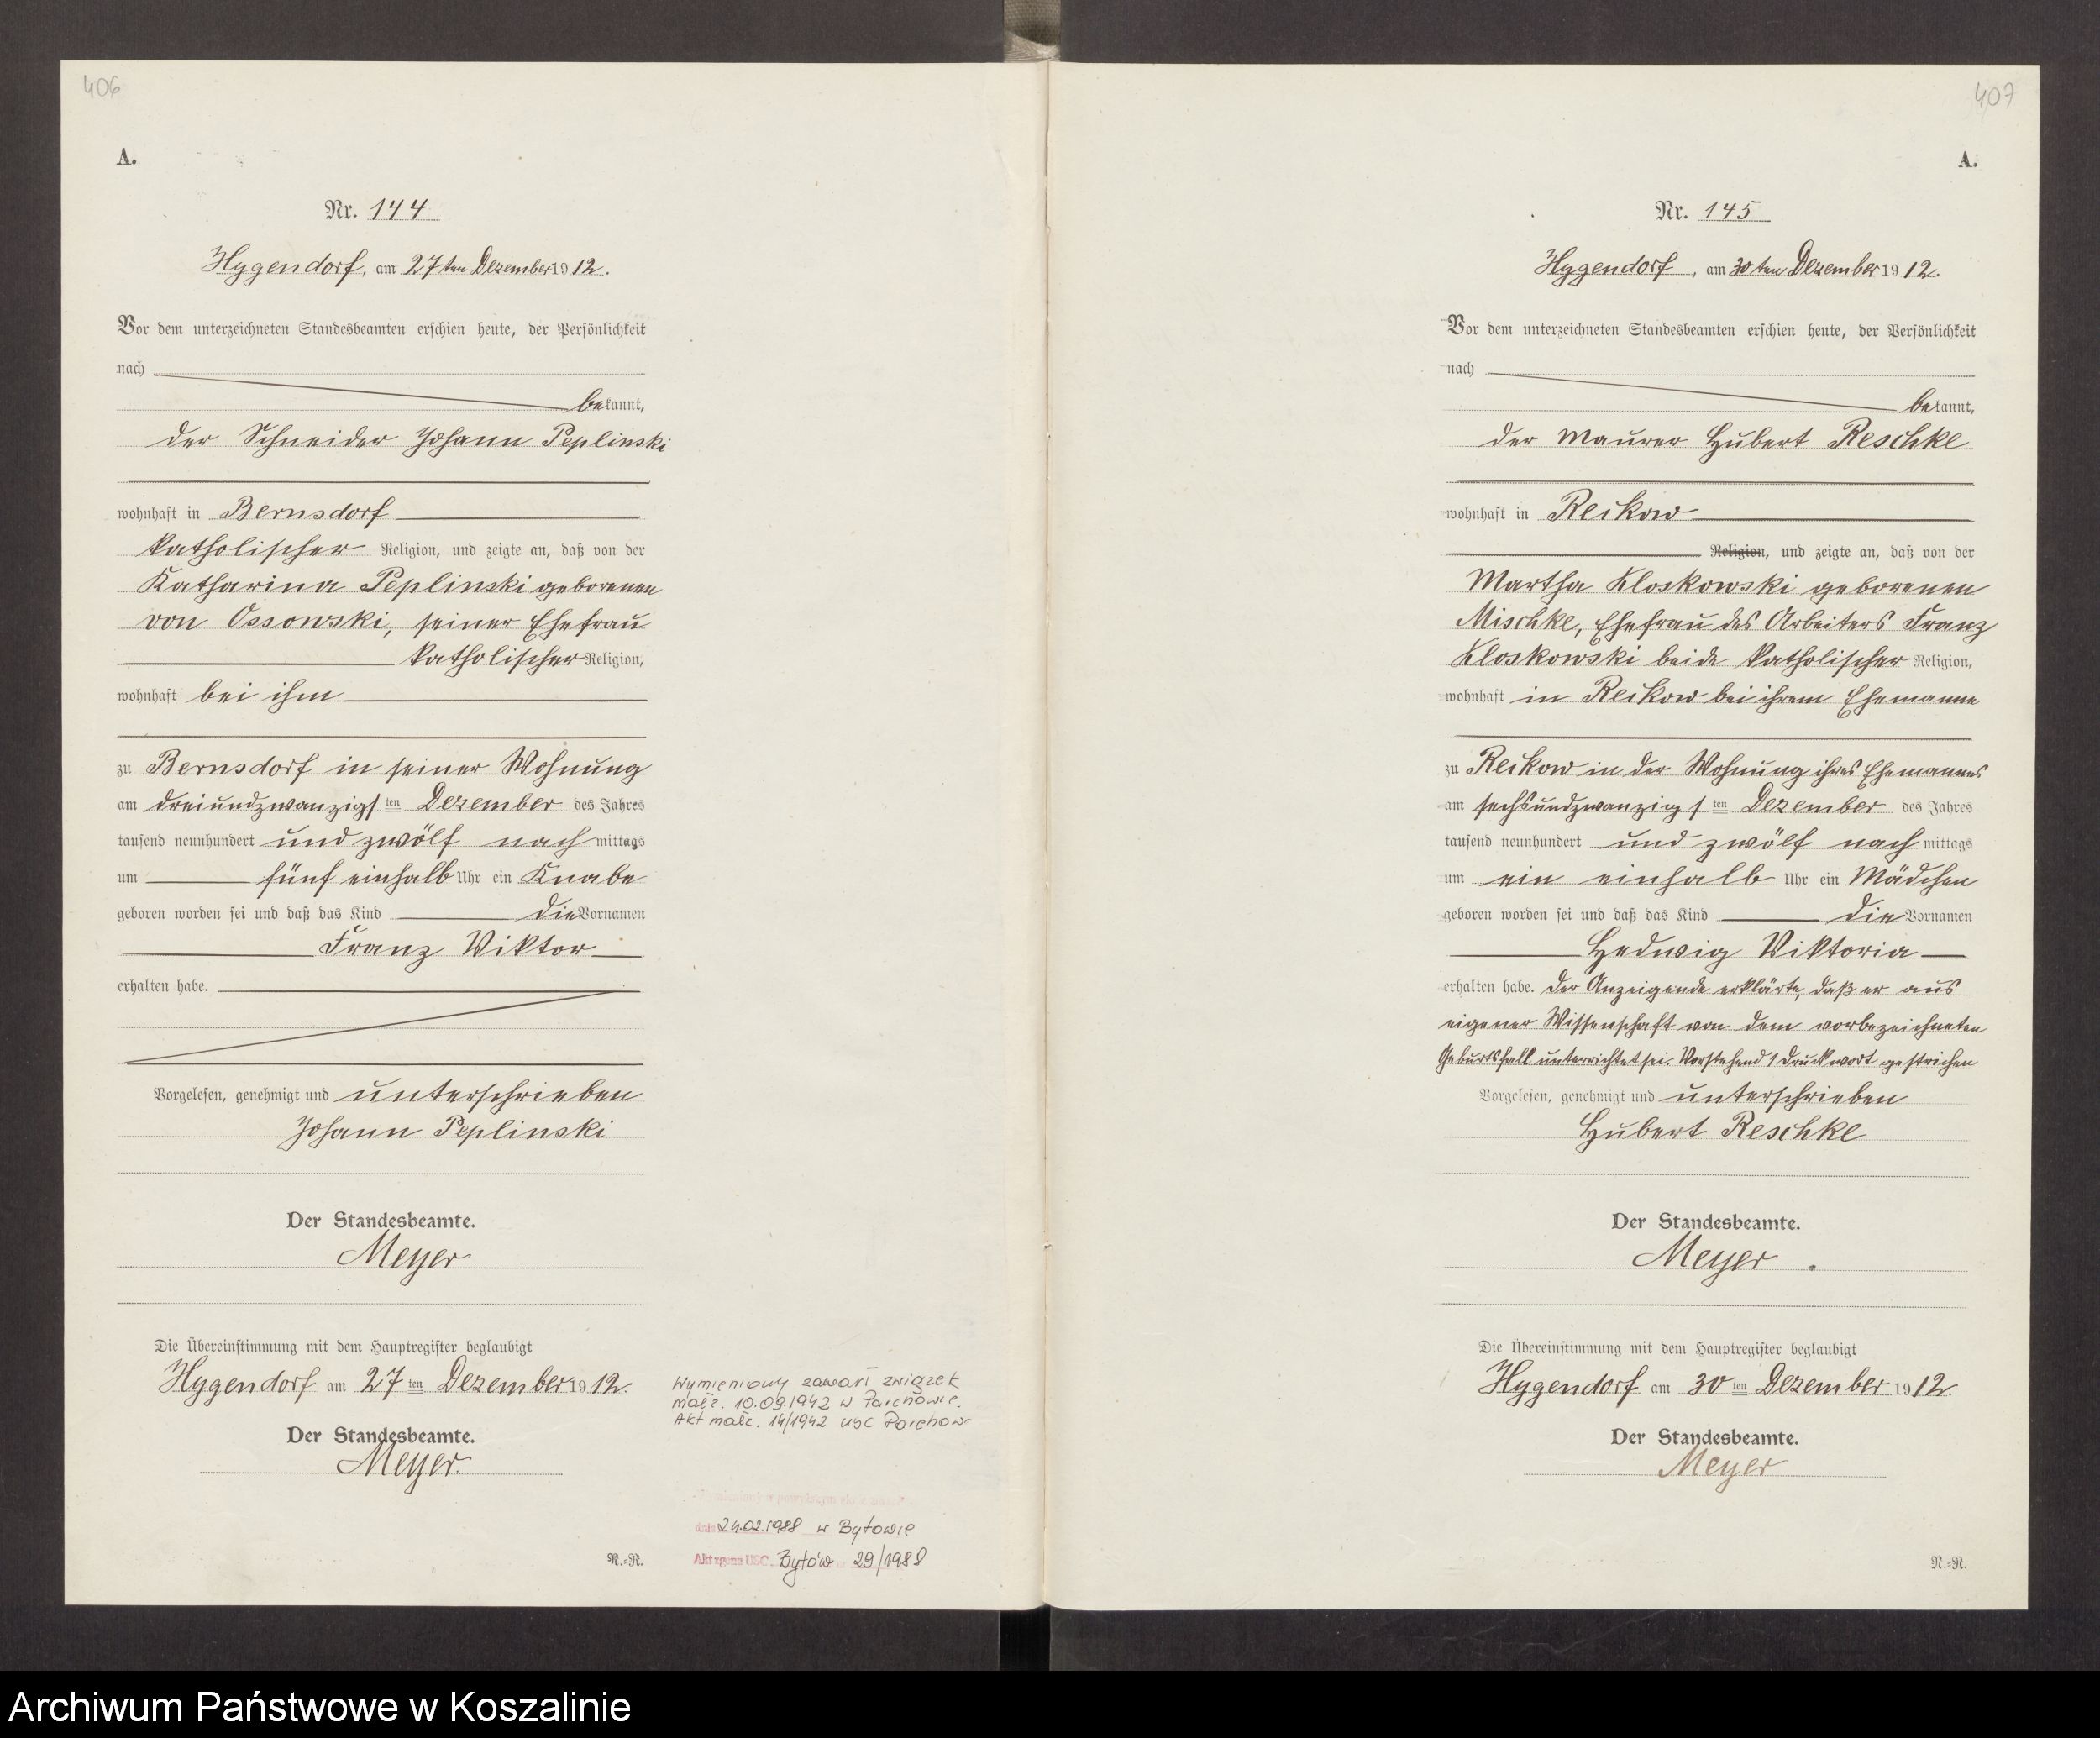 406
A.
Nr. 144
Hygendorf, am 27ten Dezember 1912.
Vor dem unterzeichneten Standesbeamten erschien heute, der Persönlichkeit
nach
bekannt,
der Schneider Johann Peplinski
wohnhaft in Bernsdorf
katholischer Religion, und zeigte an, daß von der
Katharina Peplinski geborenen
von Ossowski, seiner Ehefrau
katholischer Religion,
wohnhaft bei ihm
zu Bernsdorf in seiner Wohnung
am dreiundzwanzigsten Dezember des Jahres
tausend neunhundert und zwölf nachmittags
um fünf einhalb Uhr ein Knabe
geboren worden sei und daß das Kind die Vornamen
Franz Viktor
erhalten habe.
Vorgelesen, genehmigt und unterschrieben
Johann Peplinski
Der Standesbeamte.
Meyer
Die Übereinstimmung mit dem Hauptregister beglaubigt
Hygendorf am 27ten Dezember 1912.
Der Standesbeamte.
Meyer.
N.=R.
Wymieniony zawarł związek
małż. 10.09.1942 w Parchowie.
Akt małż. 14/1942 USC Parchow
dnia 24.02.1988 w Bytowie
Akt zgonu USC Bytów 29/1988
407
A.
Nr. 145
Hygendorf, am 30ten Dezember 1912.
Vor dem unterzeichneten Standesbeamten erschien heute, der Persönlichkeit
nach
bekannt,
der Maurer Hubert Reschke
wohnhaft in Reikow
Religion, und zeigte an, daß von der
Martha Kloskowski geborenen
Mischke, Ehefrau des Arbeiters Franz
Kloskowski beide katholischer Religion,
wohnhaft in Reikow bei ihrem Ehemanne
zu Reikow in der Wohnung ihres Ehemannes
am sechsundzwanzigsten Dezember des Jahres
tausend neunhundert und zwölf nachmittags
um ein einhalb Uhr ein Mädchen
geboren worden sei und daß das Kind die Vornamen
Hedwig Viktoria
erhalten habe. Der Anzeigende erklärte, daß er aus
eigener Wissenschaft von dem vorbezeichneten
Geburtsfall unterrichtet sei. Vorstehend 1 Druckwort gestrichen
Vorgelesen, genehmigt und unterschrieben
Hubert Reschke
Der Standesbeamte.
Meyer.
Die Übereinstimmung mit dem Hauptregister beglaubigt
Hygendorf am 30ten Dezember 1912.
Der Standesbeamte.
Meyer
N.=R.
Archiwum Państwowe w Koszalinie